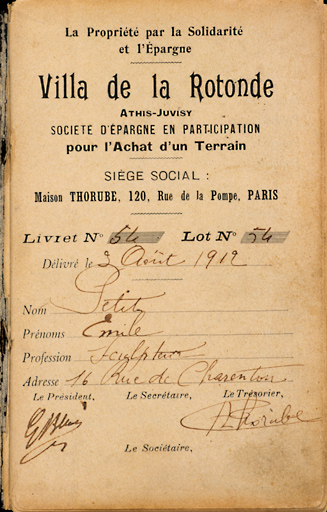 La Propriété par la Solidarité
et l'Épargne
Villa de la Rotonde
ATHIS-JUVISY
SOCIETE D'ÉPARGNE EN PARTICIPATION
pour l'Achat d'un Terrain
SIÈGE SOCIAL :
Maison THORUBE, 120, Rue de la Pompe, PARIS
Livret N° 54 Lot N° 54
Délivré le 3 Août 1912
Nom Petit
Prénoms Emile
Profession Sculpteur
Adresse 16 Rue de Charenton
Le Président, Le Secrétaire, Le Trésorier,
Thorube
Le Sociétaire,